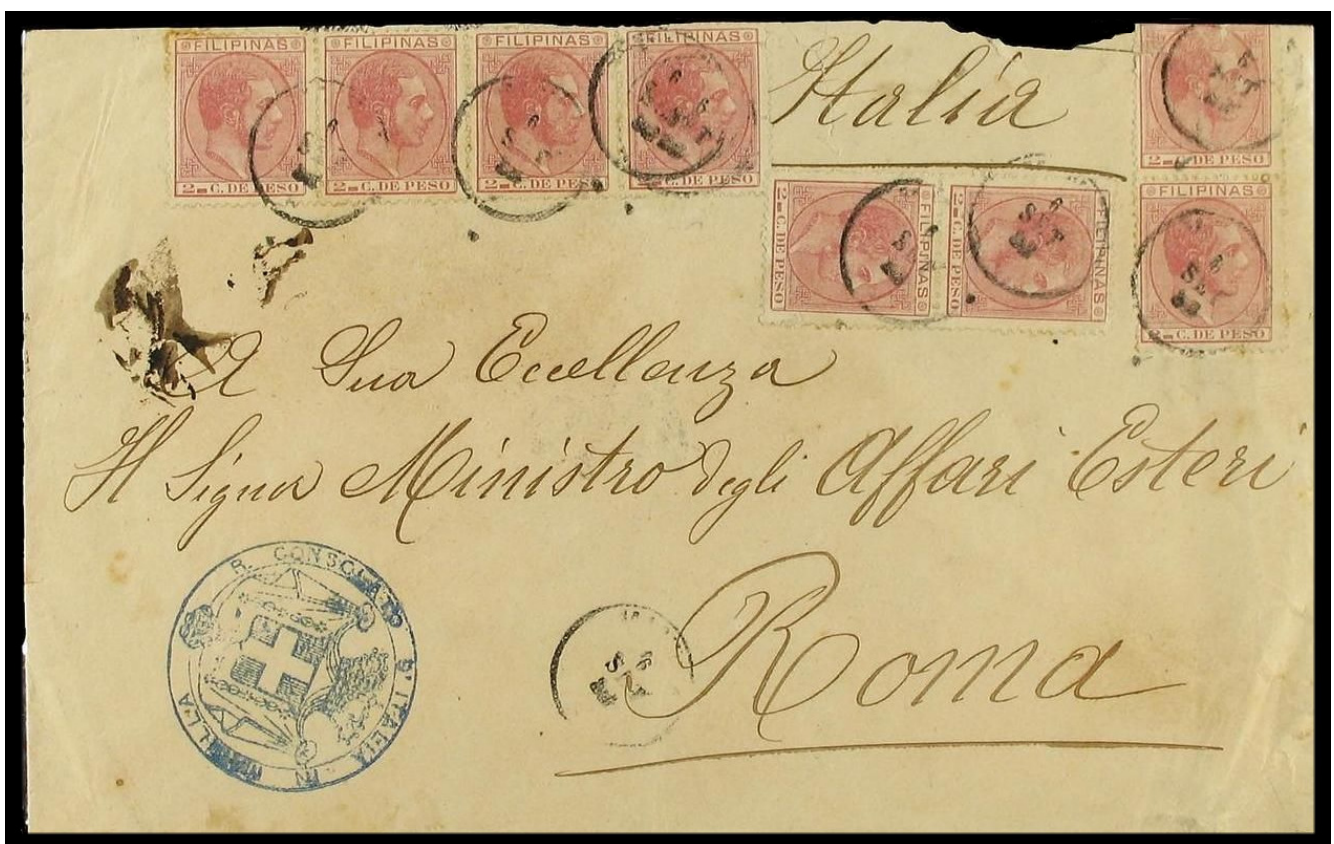 FILIPINAS FILIPINAS FILIPINAS FILIPINAS
2 C. DE PESO 2 C. DE PESO 2 C. DE PESO 2 C. DE PESO
Italia
2 C. DE PESO
FILIPINAS
2 C. DE PESO
FILIPINAS
2 C. DE PESO
FILIPINAS
2 C. DE PESO
A Sua Eccellenza
Il Signor Ministro degli Affari Esteri
Roma
R. CONSOLATO D'ITALIA IN MANILLA